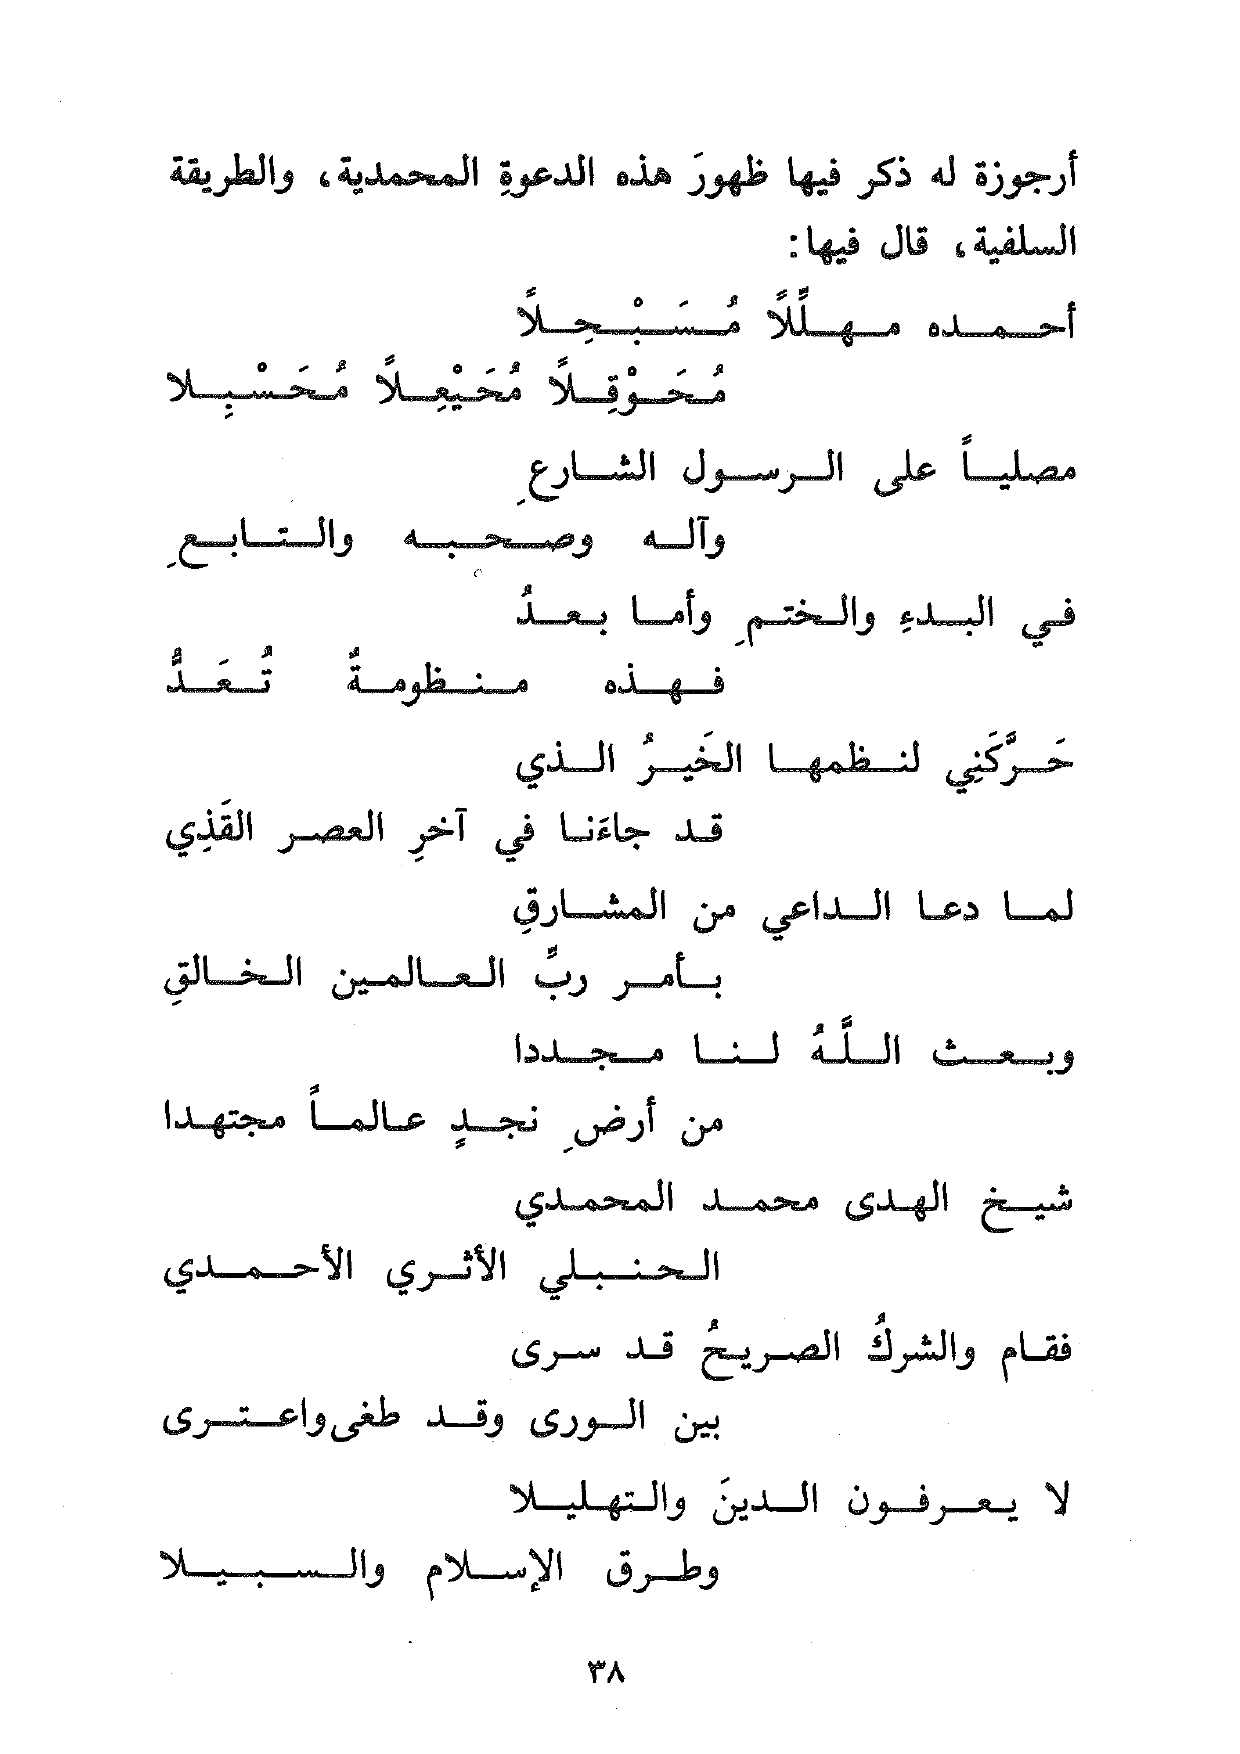 أرجوزة له ذكر فيها ظهورَ هذه الدعوةِ المحمدية، والطريقة
السلفية، قال فيها:
أحمده مهلِّلاً مُسَبْحِلاً
مُحَوْقِلاً مُحَيْعِلاً مُحَسْبِلا
مصلياً على الرسول الشارعِ
وآله وصحبه والتابعِ
في البدءِ والختمِ وأما بعدُ
فهذه منظومةٌ تُعَدُّ
حَرَّكَنِي لنظمها الخَيرُ الذي
قد جاءَنا في آخرِ العصر القَذِي
لما دعا الداعي من المشارقِ
بأمر ربِّ العالمين الخالقِ
وبعث اللَّهُ لنا مجددا
من أرضِ نجدٍ عالماً مجتهدا
شيخ الهدى محمد المحمدي
الحنبلي الأثري الأحمدي
فقام والشركُ الصريحُ قد سرى
بين الورى وقد طغى واعترى
لا يعرفون الدينَ والتهليلا
وطرق الإسلام والسبيلا
٣٨